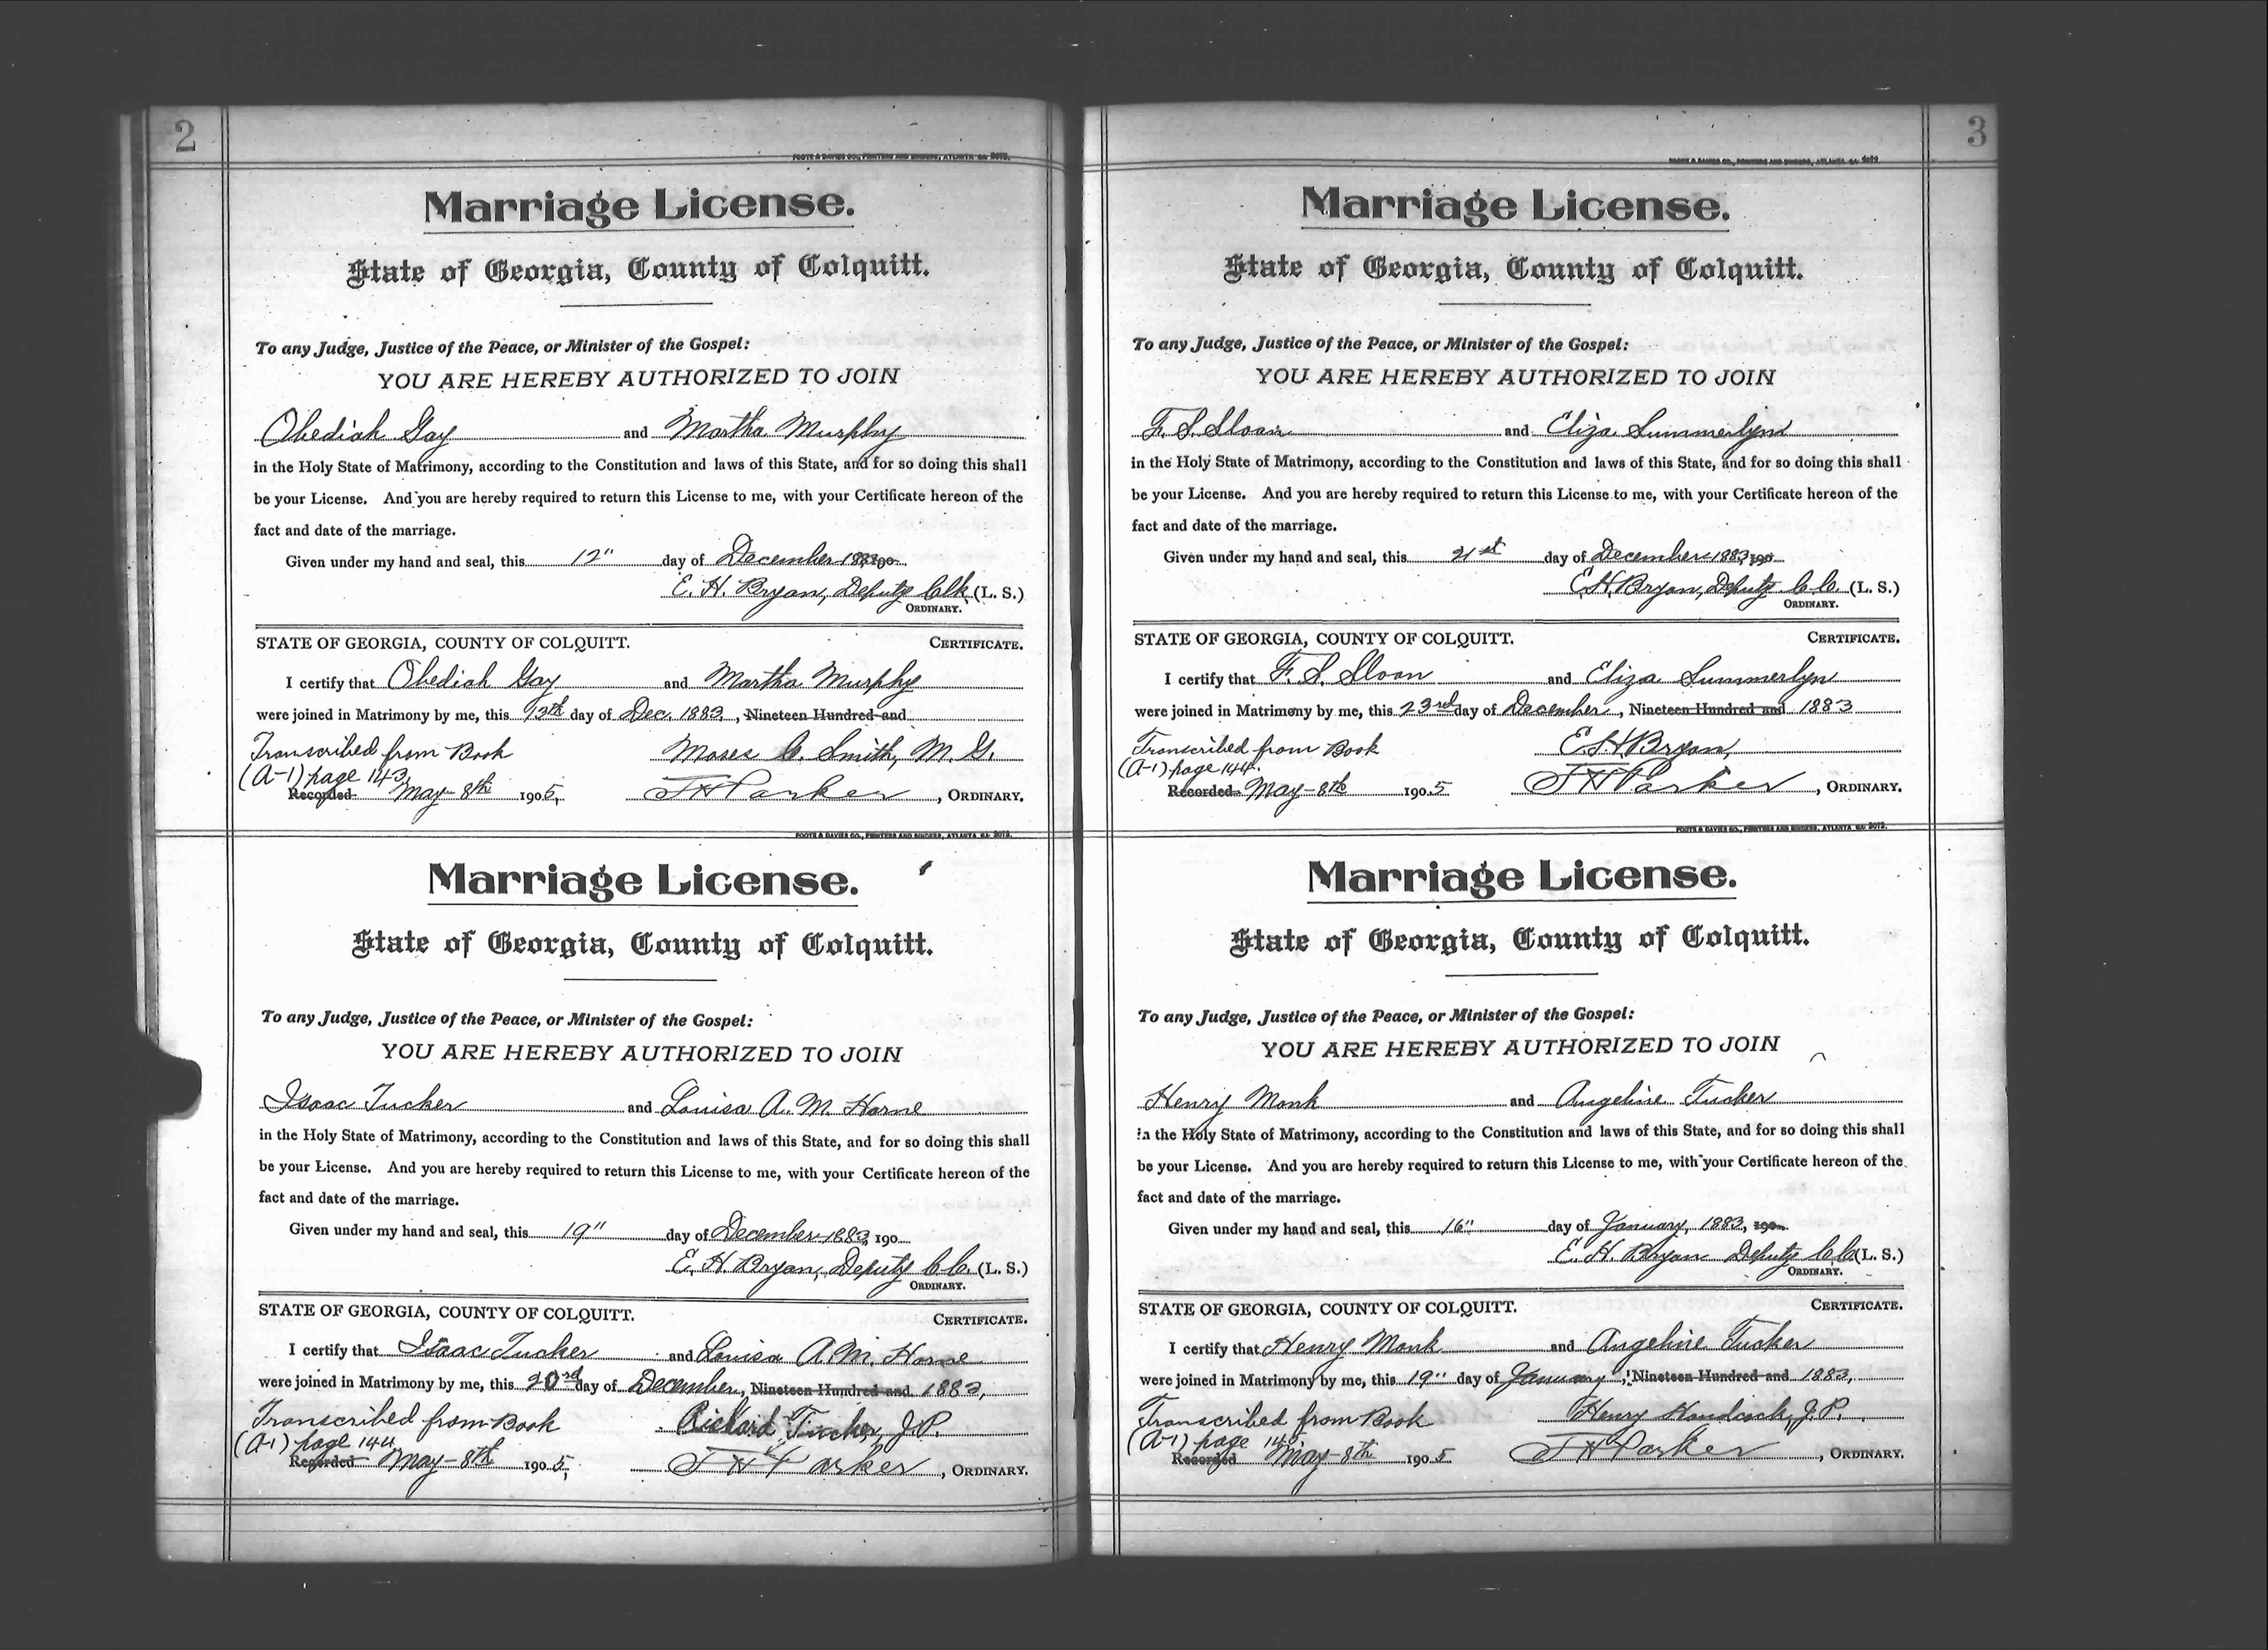 2
FOOTE & DAVIES CO., PRINTERS AND BINDERS, ATLANTA GA. 2072.
Marriage License.
State of Georgia, County of Colquitt.
To any Judge, Justice of the Peace, or Minister of the Gospel:
YOU ARE HEREBY AUTHORIZED TO JOIN
Obediah Gay and Martha Murphy
in the Holy State of Matrimony, according to the Constitution and laws of this State, and for so doing this shall
be your License. And you are hereby required to return this License to me, with your Certificate hereon of the
fact and date of the marriage.
Given under my hand and seal, this 12" day of December 1883, 190
E. H. Bryan, Deputy Clk (L. S.)
ORDINARY.
STATE OF GEORGIA, COUNTY OF COLQUITT. CERTIFICATE.
I certify that Obediah Gay and Martha Murphy
were joined in Matrimony by me, this 13th day of Dec. 1883, Nineteen Hundred and
Transcribed from Book Moses C. Smith, M. G.
(A-1) page 143,
Recorded May-8th 1905, J H Parker, ORDINARY.
FOOTE & DAVIES CO., PRINTERS AND BINDERS, ATLANTA GA. 2072.
Marriage License.
State of Georgia, County of Colquitt.
To any Judge, Justice of the Peace, or Minister of the Gospel:
YOU ARE HEREBY AUTHORIZED TO JOIN
Isaac Tucker and Louisa A. M. Horne
in the Holy State of Matrimony, according to the Constitution and laws of this State, and for so doing this shall
be your License. And you are hereby required to return this License to me, with your Certificate hereon of the
fact and date of the marriage.
Given under my hand and seal, this 19" day of December 1883, 190
E. H. Bryan, Deputy C.C. (L. S.)
ORDINARY.
STATE OF GEORGIA, COUNTY OF COLQUITT. CERTIFICATE.
I certify that Isaac Tucker and Louisa A. M. Horne
were joined in Matrimony by me, this 20rd day of December, Nineteen Hundred and 1883,
Transcribed from Book Richard Tucker, J.P.
(A-1) page 144,
Recorded May-8th 1905, J H Parker, ORDINARY.
3
FOOTE & DAVIES CO., PRINTERS AND BINDERS, ATLANTA GA. 2072
Marriage License.
State of Georgia, County of Colquitt.
To any Judge, Justice of the Peace, or Minister of the Gospel:
YOU ARE HEREBY AUTHORIZED TO JOIN
F. S. Sloan and Eliza Summerlyn
in the Holy State of Matrimony, according to the Constitution and laws of this State, and for so doing this shall
be your License. And you are hereby required to return this License to me, with your Certificate hereon of the
fact and date of the marriage.
Given under my hand and seal, this 21st day of December 1883, 190
E. H. Bryan, Deputy C.C. (L. S.)
ORDINARY.
STATE OF GEORGIA, COUNTY OF COLQUITT. CERTIFICATE.
I certify that F. S. Sloan and Eliza Summerlyn
were joined in Matrimony by me, this 23rd day of December, Nineteen Hundred and 1883
Transcribed from Book E. H. Bryan,
(A-1) page 144.
Recorded May-8th 1905 J H Parker, ORDINARY.
FOOTE & DAVIES CO., PRINTERS AND BINDERS, ATLANTA GA. 2072.
Marriage License.
State of Georgia, County of Colquitt.
To any Judge, Justice of the Peace, or Minister of the Gospel:
YOU ARE HEREBY AUTHORIZED TO JOIN
Henry Monk and Angeline Tucker
in the Holy State of Matrimony, according to the Constitution and laws of this State, and for so doing this shall
be your License. And you are hereby required to return this License to me, with your Certificate hereon of the
fact and date of the marriage.
Given under my hand and seal, this 16" day of January, 1883, 190
E. H. Bryan Deputy C.C. (L. S.)
ORDINARY.
STATE OF GEORGIA, COUNTY OF COLQUITT. CERTIFICATE.
I certify that Henry Monk and Angeline Tucker
were joined in Matrimony by me, this 19" day of January, Nineteen Hundred and 1883,
Transcribed from Book Henry Handcock, J.P.
(A-1) page 145,
Recorded May-8th 1905 J H Parker, ORDINARY.